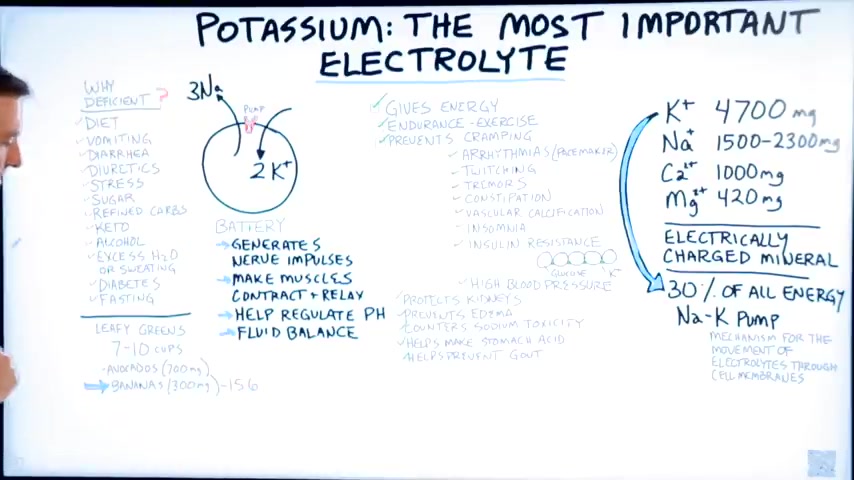 POTASSIUM: THE MOST IMPORTANT
ELECTROLYTE
WHY
DEFICIENT?
DIET
VOMITING
DIARRHEA
DIURETICS
STRESS
SUGAR
REFINED CARBS
KETO
ALCOHOL
EXCESS H2O
OR SWEATING
DIABETES
FASTING
LEAFY GREENS
7-10 CUPS
-AVOCADOS (700mg)
BANANAS (300mg)-15.6
3Na
PUMP
2K+
BATTERY
GENERATES
NERVE IMPULSES
MAKE MUSCLES
CONTRACT + RELAX
HELP REGULATE PH
FLUID BALANCE
GIVES ENERGY
ENDURANCE-EXERCISE
PREVENTS CRAMPING
ARRHYTHMIAS (PACEMAKER)
TWITCHING
TREMORS
CONSTIPATION
VASCULAR CALCIFICATION
INSOMNIA
INSULIN RESISTANCE
GLUCOSE K+
HIGH BLOOD PRESSURE
PROTECTS KIDNEYS
PREVENTS EDEMA
COUNTERS SODIUM TOXICITY
HELPS MAKE STOMACH ACID
HELPS PREVENT GOUT
K+ 4700 mg
Na+ 1500-2300mg
Ca2+ 1000mg
Mg2+ 420mg
ELECTRICALLY
CHARGED MINERAL
30% OF ALL ENERGY
Na-K PUMP
MECHANISM FOR THE
MOVEMENT OF
ELECTROLYTES THROUGH
CELL MEMBRANES